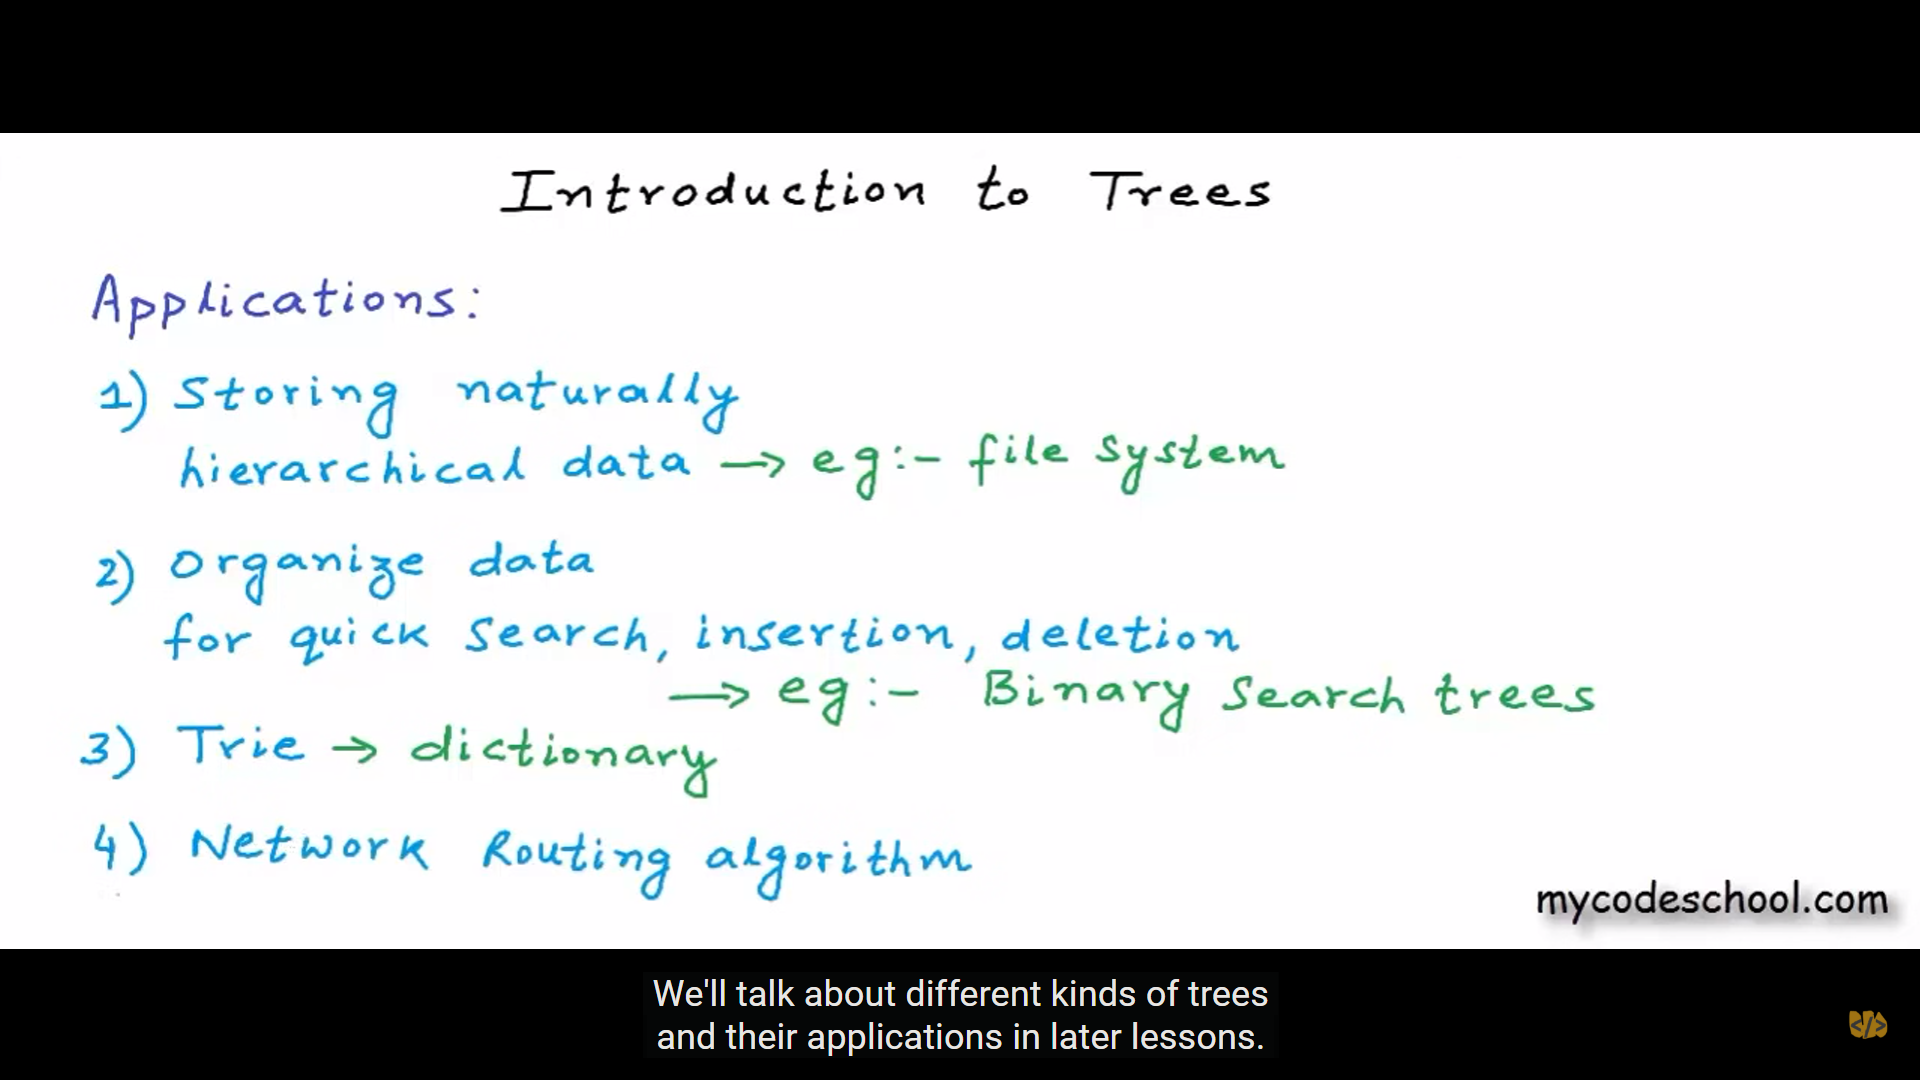 Introduction to Trees
Applications:
1) Storing naturally
hierarchical data → eg:- file system
2) Organize data
for quick search, insertion, deletion
→ eg:- Binary Search trees
3) Trie → dictionary
4) Network Routing algorithm
mycodeschool.com
We'll talk about different kinds of trees
and their applications in later lessons.